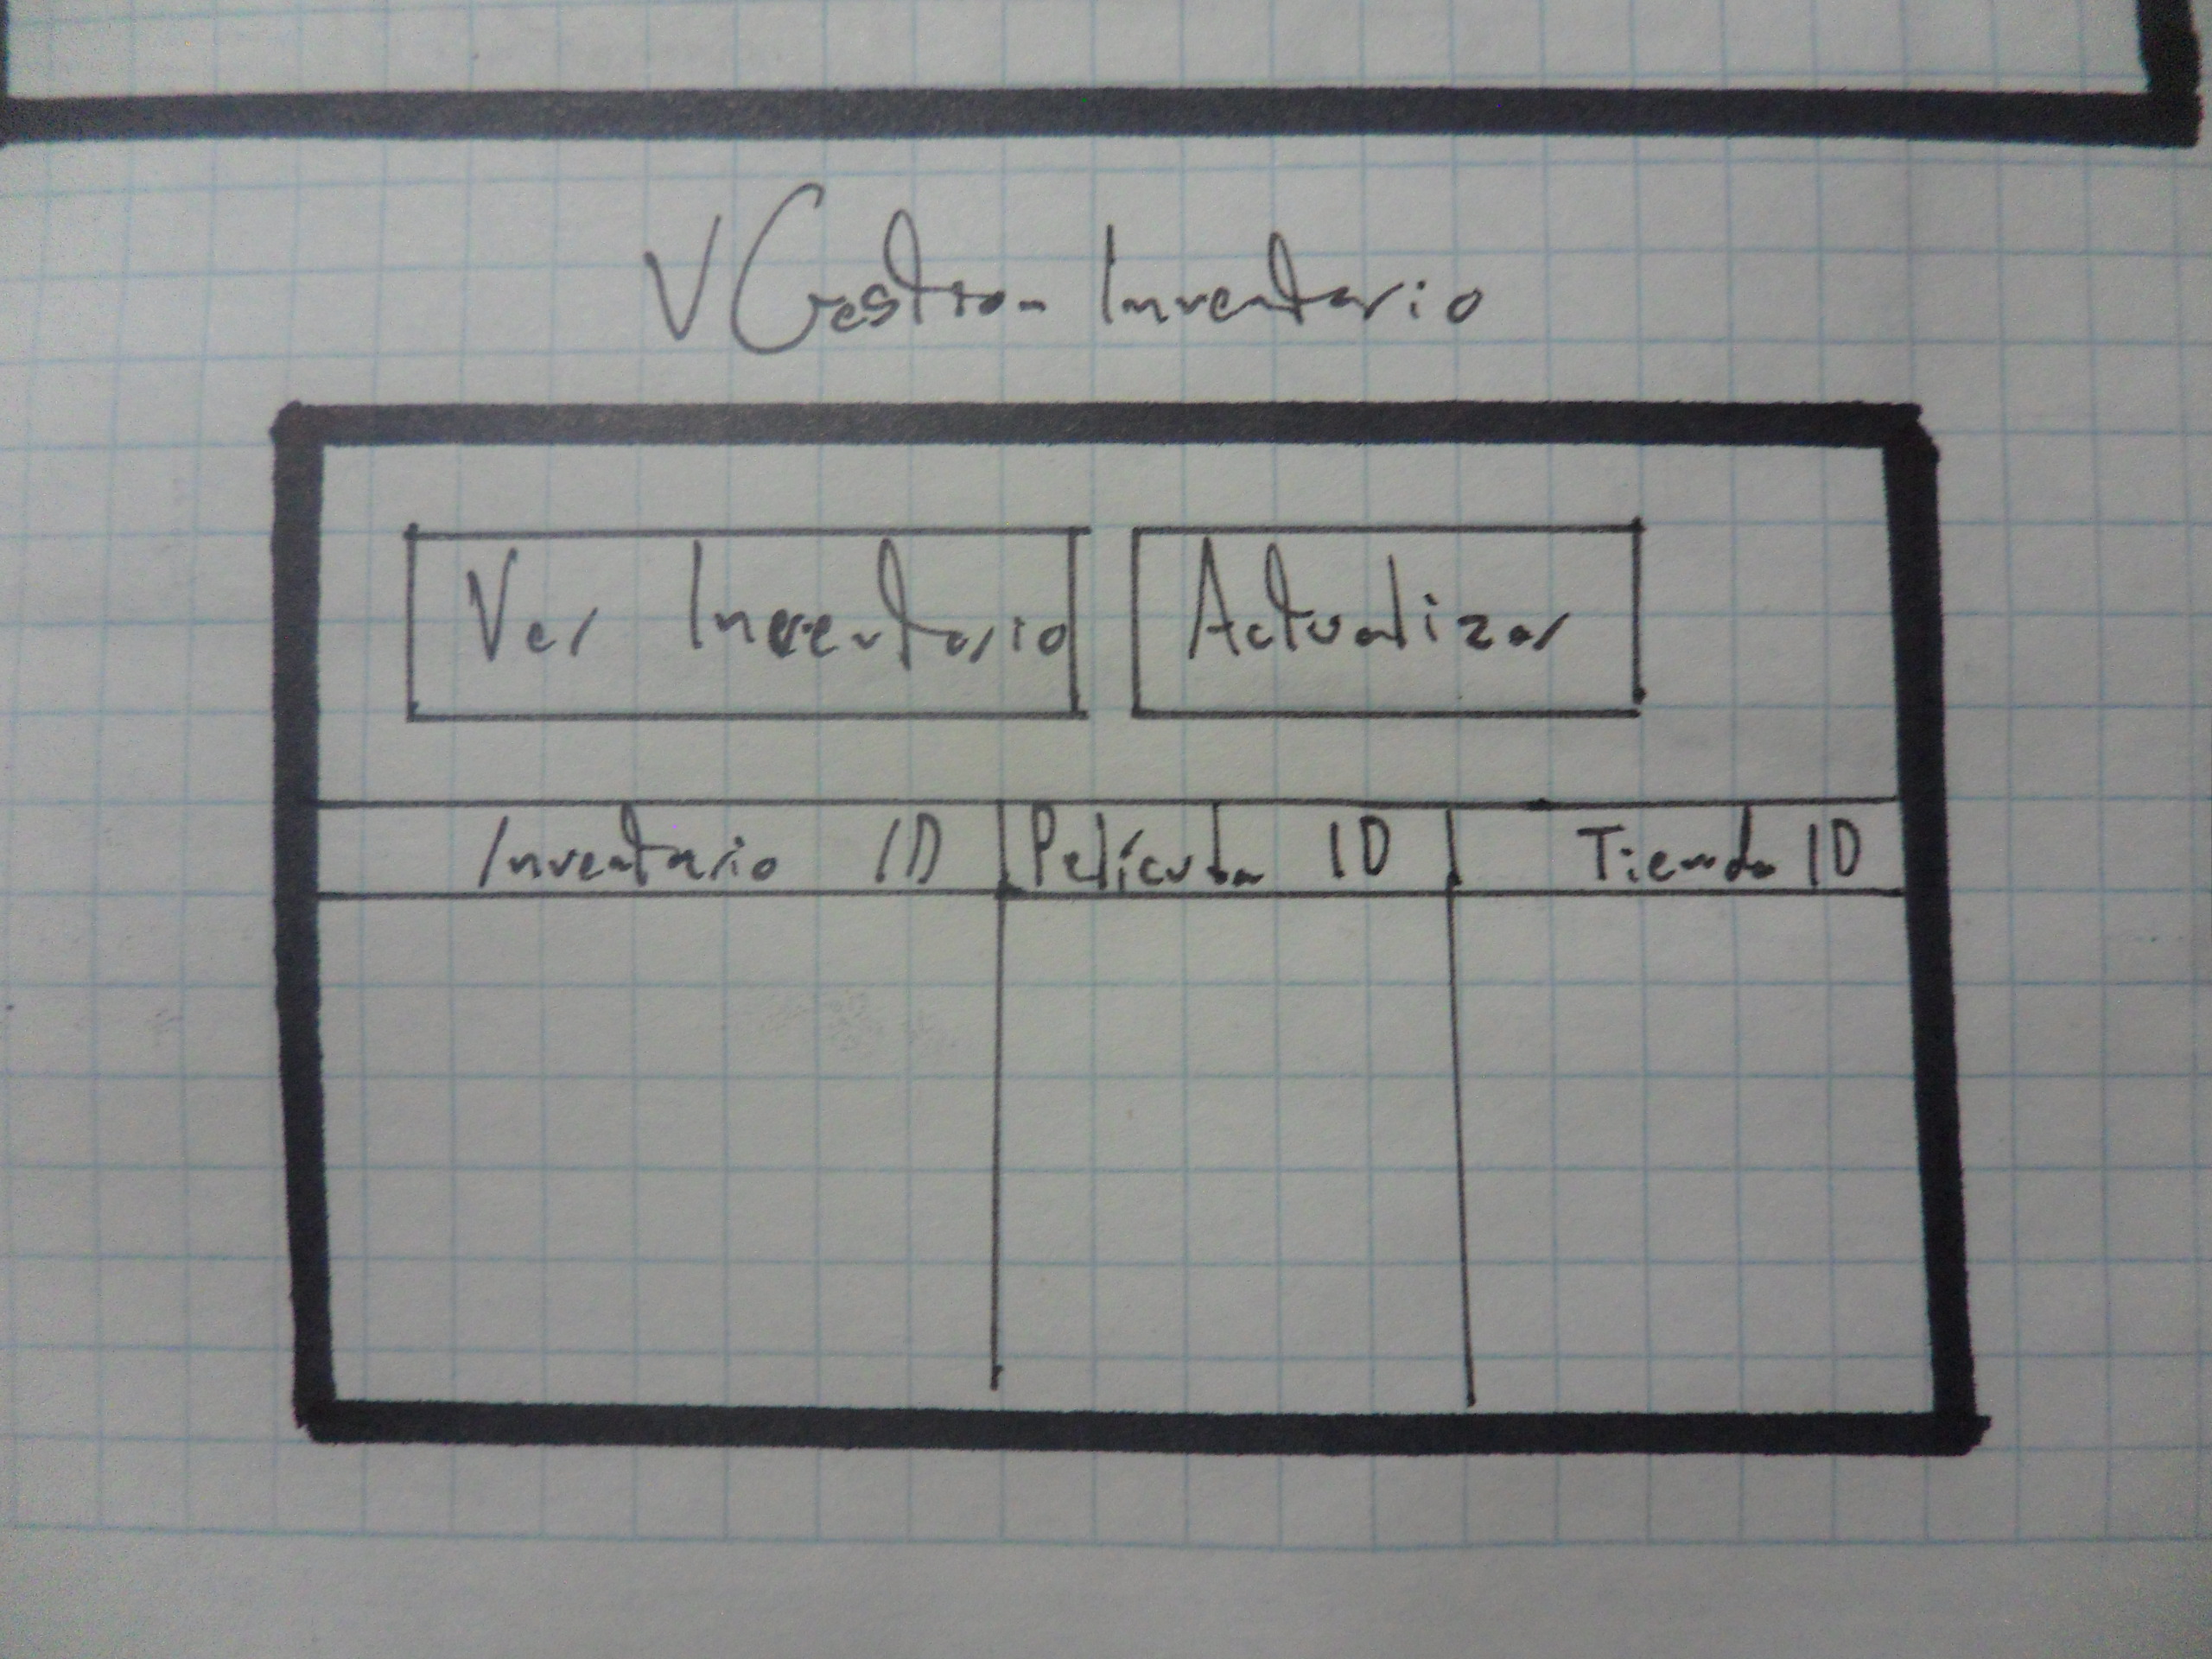 VGestion Inventario
Ver Inventario Actualizar
Inventario ID Película ID Tienda ID